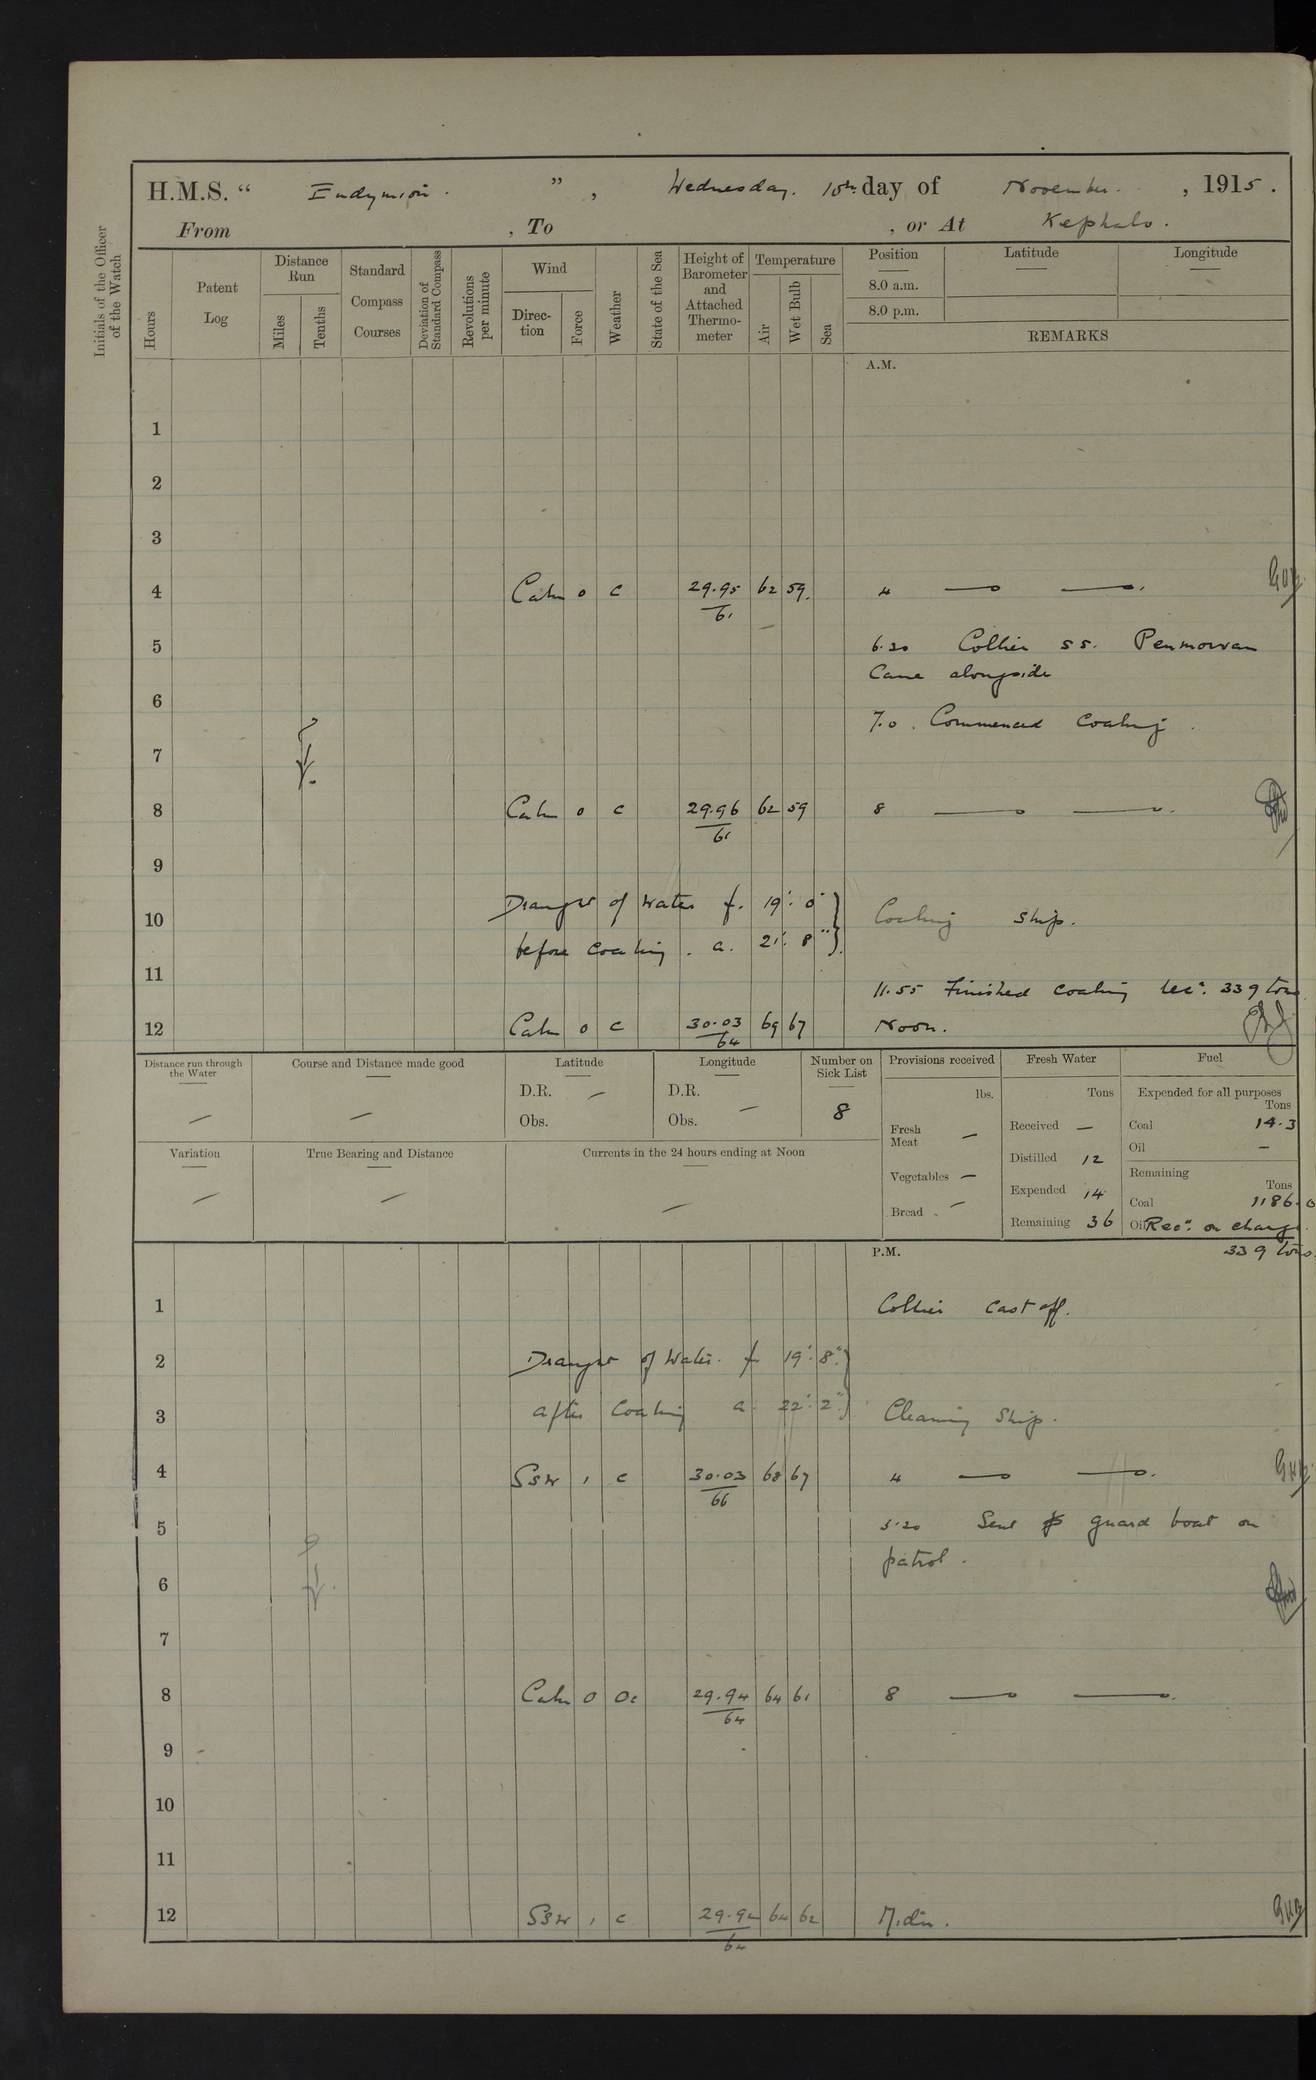 H.M.S. “ Endymion. ” , Wednesday. 10th day of November. , 1915.
From , To , or At Kephalo.
Initials of the Officer of the Watch
Hours
Patent Log
Distance Run
Miles
Tenths
Standard Compass Courses
Deviation of Standard Compass
Revolutions per minute
Wind
Direction
Force
Weather
State of the Sea
Height of Barometer and Attached Thermometer
Temperature
Air
Wet Bulb
Sea
Position Latitude Longitude
8.0 a.m.
8.0 p.m.
REMARKS
A.M.
1
2
3
4 Calm 0 c 29.95/61 62 59. 4 — —.
5 6.20 Collier ss. Penmorvan
Came alongside
6
7.0. Commenced Coaling.
7
8 Calm 0 c 29.96/61 62 59 8 — —.
9
Draught of Water f. 19' 0"
10 Coaling Ship.
before coaling. a. 21' 8"
11
11.55 Finished coaling rec'd. 339 tons
12 Calm 0 c 30.03/64 69 67 Noon.
Distance run through the Water —
Course and Distance made good —
Latitude
D.R. —
Obs.
Longitude
D.R.
Obs. —
Number on Sick List
8
Variation —
True Bearing and Distance —
Currents in the 24 hours ending at Noon —
Provisions received
lbs.
Fresh Meat —
Vegetables —
Bread —
Fresh Water
Tons
Received —
Distilled 12
Expended 14
Remaining 36
Fuel
Expended for all purposes
Tons
Coal 14.3
Oil —
Remaining
Tons
Coal 1186.0
Oil Recd. on charge.
339 tons.
P.M.
1 Collier cast off.
2 Draught of Water. f 19' 8"
3 after Coaling a. 22' 2" Cleaning Ship.
4 SSW 1 c 30.03/66 68 67 4 — —.
5 5.20 Sent guard boat on
patrol.
6
7
8 Calm 0 Oc 29.94/64 64 61 8 — —.
9
10
11
12 SSW 1 c 29.92/64 64 62 Midn.